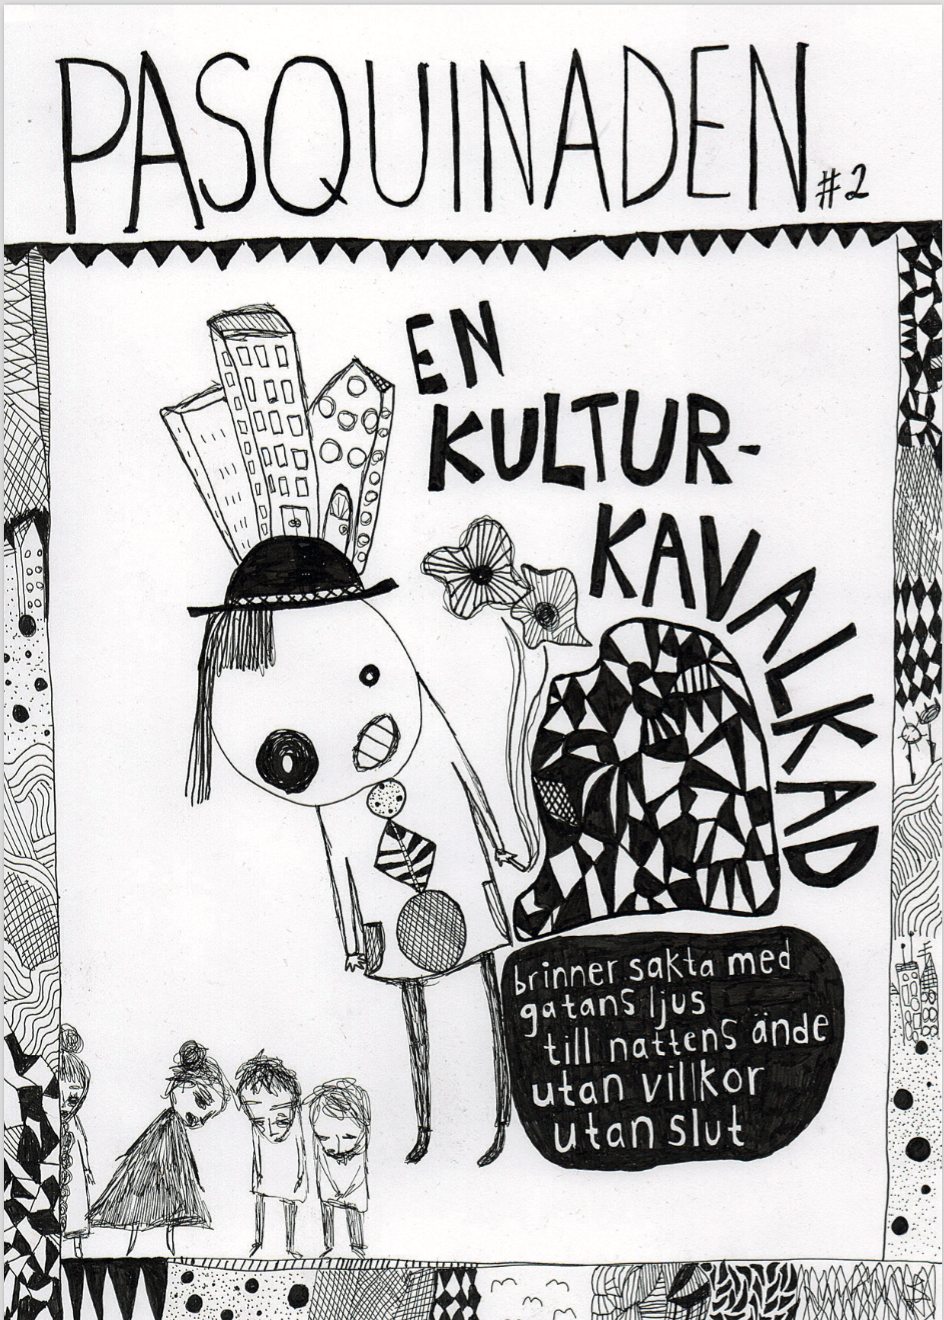 PASQUINADEN #2
EN
KULTUR-
KAVALKAD
brinner sakta med
gatans ljus
till nattens ände
utan villkor
utan slut